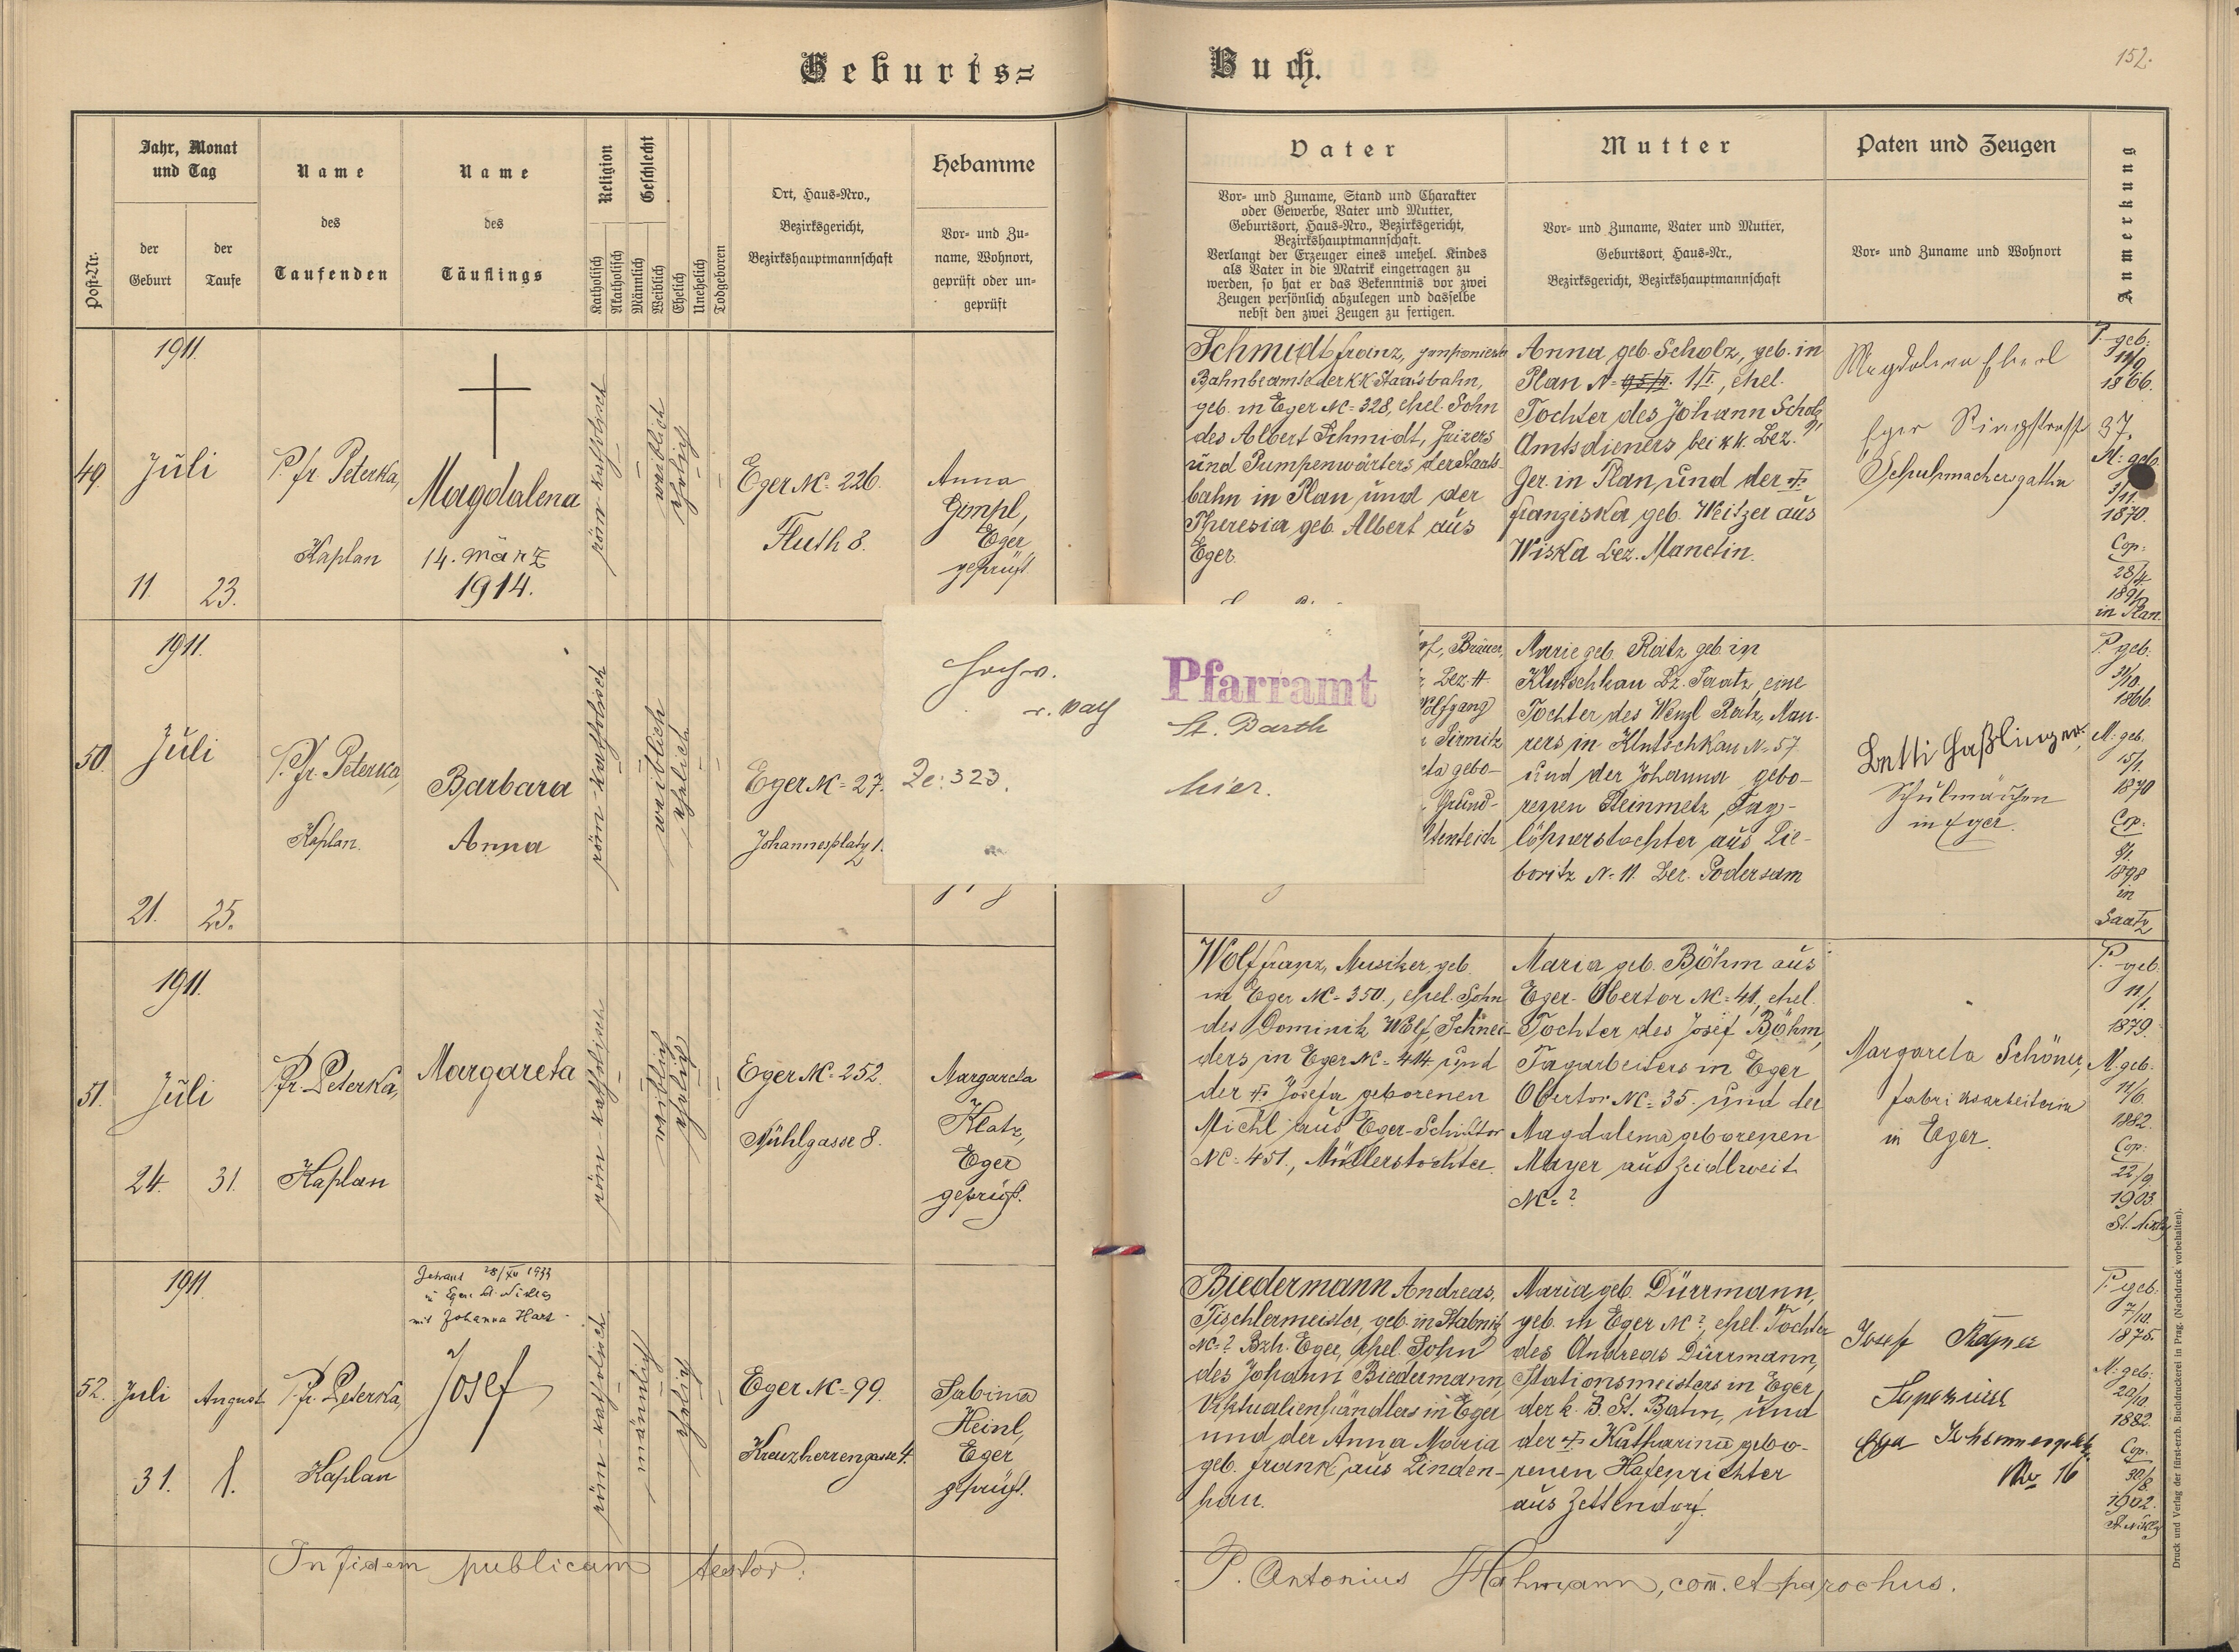 Geburts=
Buch.
152.
Post-Nr.
Jahr, Monat
und Tag
der
Geburt
der
Taufe
Name
des
Taufenden
Name
des
Täuflings
Religion
Katholisch
Akatholisch
Geschlecht
Männlich
Weiblich
Ehelich
Unehelich
Todgeboren
Ort, Haus-Nro.,
Bezirksgericht,
Bezirkshauptmannschaft
Hebamme
Vor- und Zu-
name, Wohnort,
geprüft oder un-
geprüft
Vater
Vor- und Zuname, Stand und Charakter
oder Gewerbe, Vater und Mutter,
Geburtsort, Haus-Nro., Bezirksgericht,
Bezirkshauptmannschaft.
Verlangt der Erzeuger eines unehel. Kindes
als Vater in die Matrik eingetragen zu
werden, so hat er das Bekenntnis vor zwei
Zeugen persönlich abzulegen und dasselbe
nebst den zwei Zeugen zu fertigen.
Mutter
Vor- und Zuname, Vater und Mutter,
Geburtsort, Haus-Nr.,
Bezirksgericht, Bezirkshauptmannschaft
Paten und Zeugen
Vor- und Zuname und Wohnort
Anmerkung
1911.
49.
Juli
11
23.
P. Fr. Peterka,
Kaplan
Magdalena
14. März
1914.
röm-katholisch
weiblich
ehelich
Eger Nc= 226.
Fluth 8.
Anna
Eger
geprüft
Schmidt Franz, pensionierter
Bahnbeamte der KK Staatsbahn,
geb. in Eger Nc= 328, ehel. Sohn
des Albert Schmidt, Heizers
und Pumpenwärters der Staats-
bahn in Plan und der
Theresia geb. Albert aus
Eger.
Anna geb. Scholz, geb. in
Plan N= 1/I, ehel.
Tochter des Johann Scholz,
Amtsdieners bei kk. Bez.
Ger. in Plan und der
Franziska geb. Weitzer aus
Wiska Bez. Manetin.
Magdalena Eberl
Eger Ringstrasse 37.
Schuhmachersgattin
P. geb:
11/9
1866.
M: geb.
3/11.
1870.
Cop:
28/4
in Plan.
1911.
50.
Juli
21.
25.
P. Fr. Peterka,
Kaplan.
Barbara
Anna
röm-katholisch
weiblich
ehelich
Eger Nc= 27.
Johannesplatz 1.
Hochw.
Ze: 323.
Pfarramt
St. Barth
hier.
Bräuer,
Bez.
Wolfgang
Sirmitz
gebo-
Grund-
Marie geb. Raitz geb. in
Klutschkau Bz. Saatz, eine
Tochter des Wenzl Raitz, Mau-
rers in Klutschkau N= 57
und der Johanna gebo-
renen Steinmetz, Tag-
löhnerstochter aus Lie-
boritz N= 11. Bez. Podersam
Betti Haßlinger,
Schulmädchen
in Eger.
P. geb:
31/10.
1866.
M: geb.
15/1.
1870
Cop:
9/1.
1898
in
Saatz
1911.
51.
Juli
24.
31.
P. Fr. Peterka,
Kaplan
Margareta
röm-katholisch
weiblich
ehelich
Eger Nc= 252.
Mühlgasse 8.
Margareta
Klatz,
Eger
geprüft.
Wolf Franz, Musiker, geb.
in Eger Nc= 350., ehel. Sohn
des Dominik Wolf, Schnei-
ders in Eger Nc= 414 und
der Josefa geborenen
Michl aus Eger-Schifftor
Nc= 451., Müllerstochter.
Maria geb. Böhm aus
Eger-Obertor Nc= 41, ehel.
Tochter des Josef Böhm,
Tagarbeiters in Eger
Obertor Nc= 35. und der
Magdalena geborenen
Mayer aus Zeidlweit
Nc= ?
Margareta Schöner,
Fabriksarbeiterin
in Eger.
P. geb:
11/1.
1879.
M. geb.
11/6.
1882.
Cop:
22/9.
1903.
1911.
52.
Juli
August
31.
1.
P. Fr. Peterka,
Kaplan
Getraut 28/XII 1933
in Eger St. Niklas
mit Johanna Hart
Josef
röm-katholisch
männlich
ehelich
Eger Nc= 99.
Kreuzherrengasse 4.
Sabina
Heinl,
Eger
geprüft.
Biedermann Andreas,
Tischlermeister, geb. in Stabnitz
Nc= ? Bzh. Eger, ehel. Sohn
des Johann Biedermann,
Viktualienhändlers in Eger
und der Anna Maria
geb. Frank aus Linden-
hau.
Maria geb. Dürrmann,
geb. in Eger Nc ?, ehel. Tochter
des Andreas Dürrmann,
Stationsmeisters in Eger
der k. B. St. Bahn, und
der Katharina gebo-
renen Hafenrichter
aus Zettendorf.
Josef
Eger
No 16
P. geb:
7/10.
1875.
M: geb:
20/10.
1882.
Cop:
30/8.
1902.
In fidem publicam testor:
P. Antonius Hahmann, com. et parochus.
Druck und Verlag der fürst-erzb. Buchdruckerei in Prag. (Nachdruck vorbehalten).